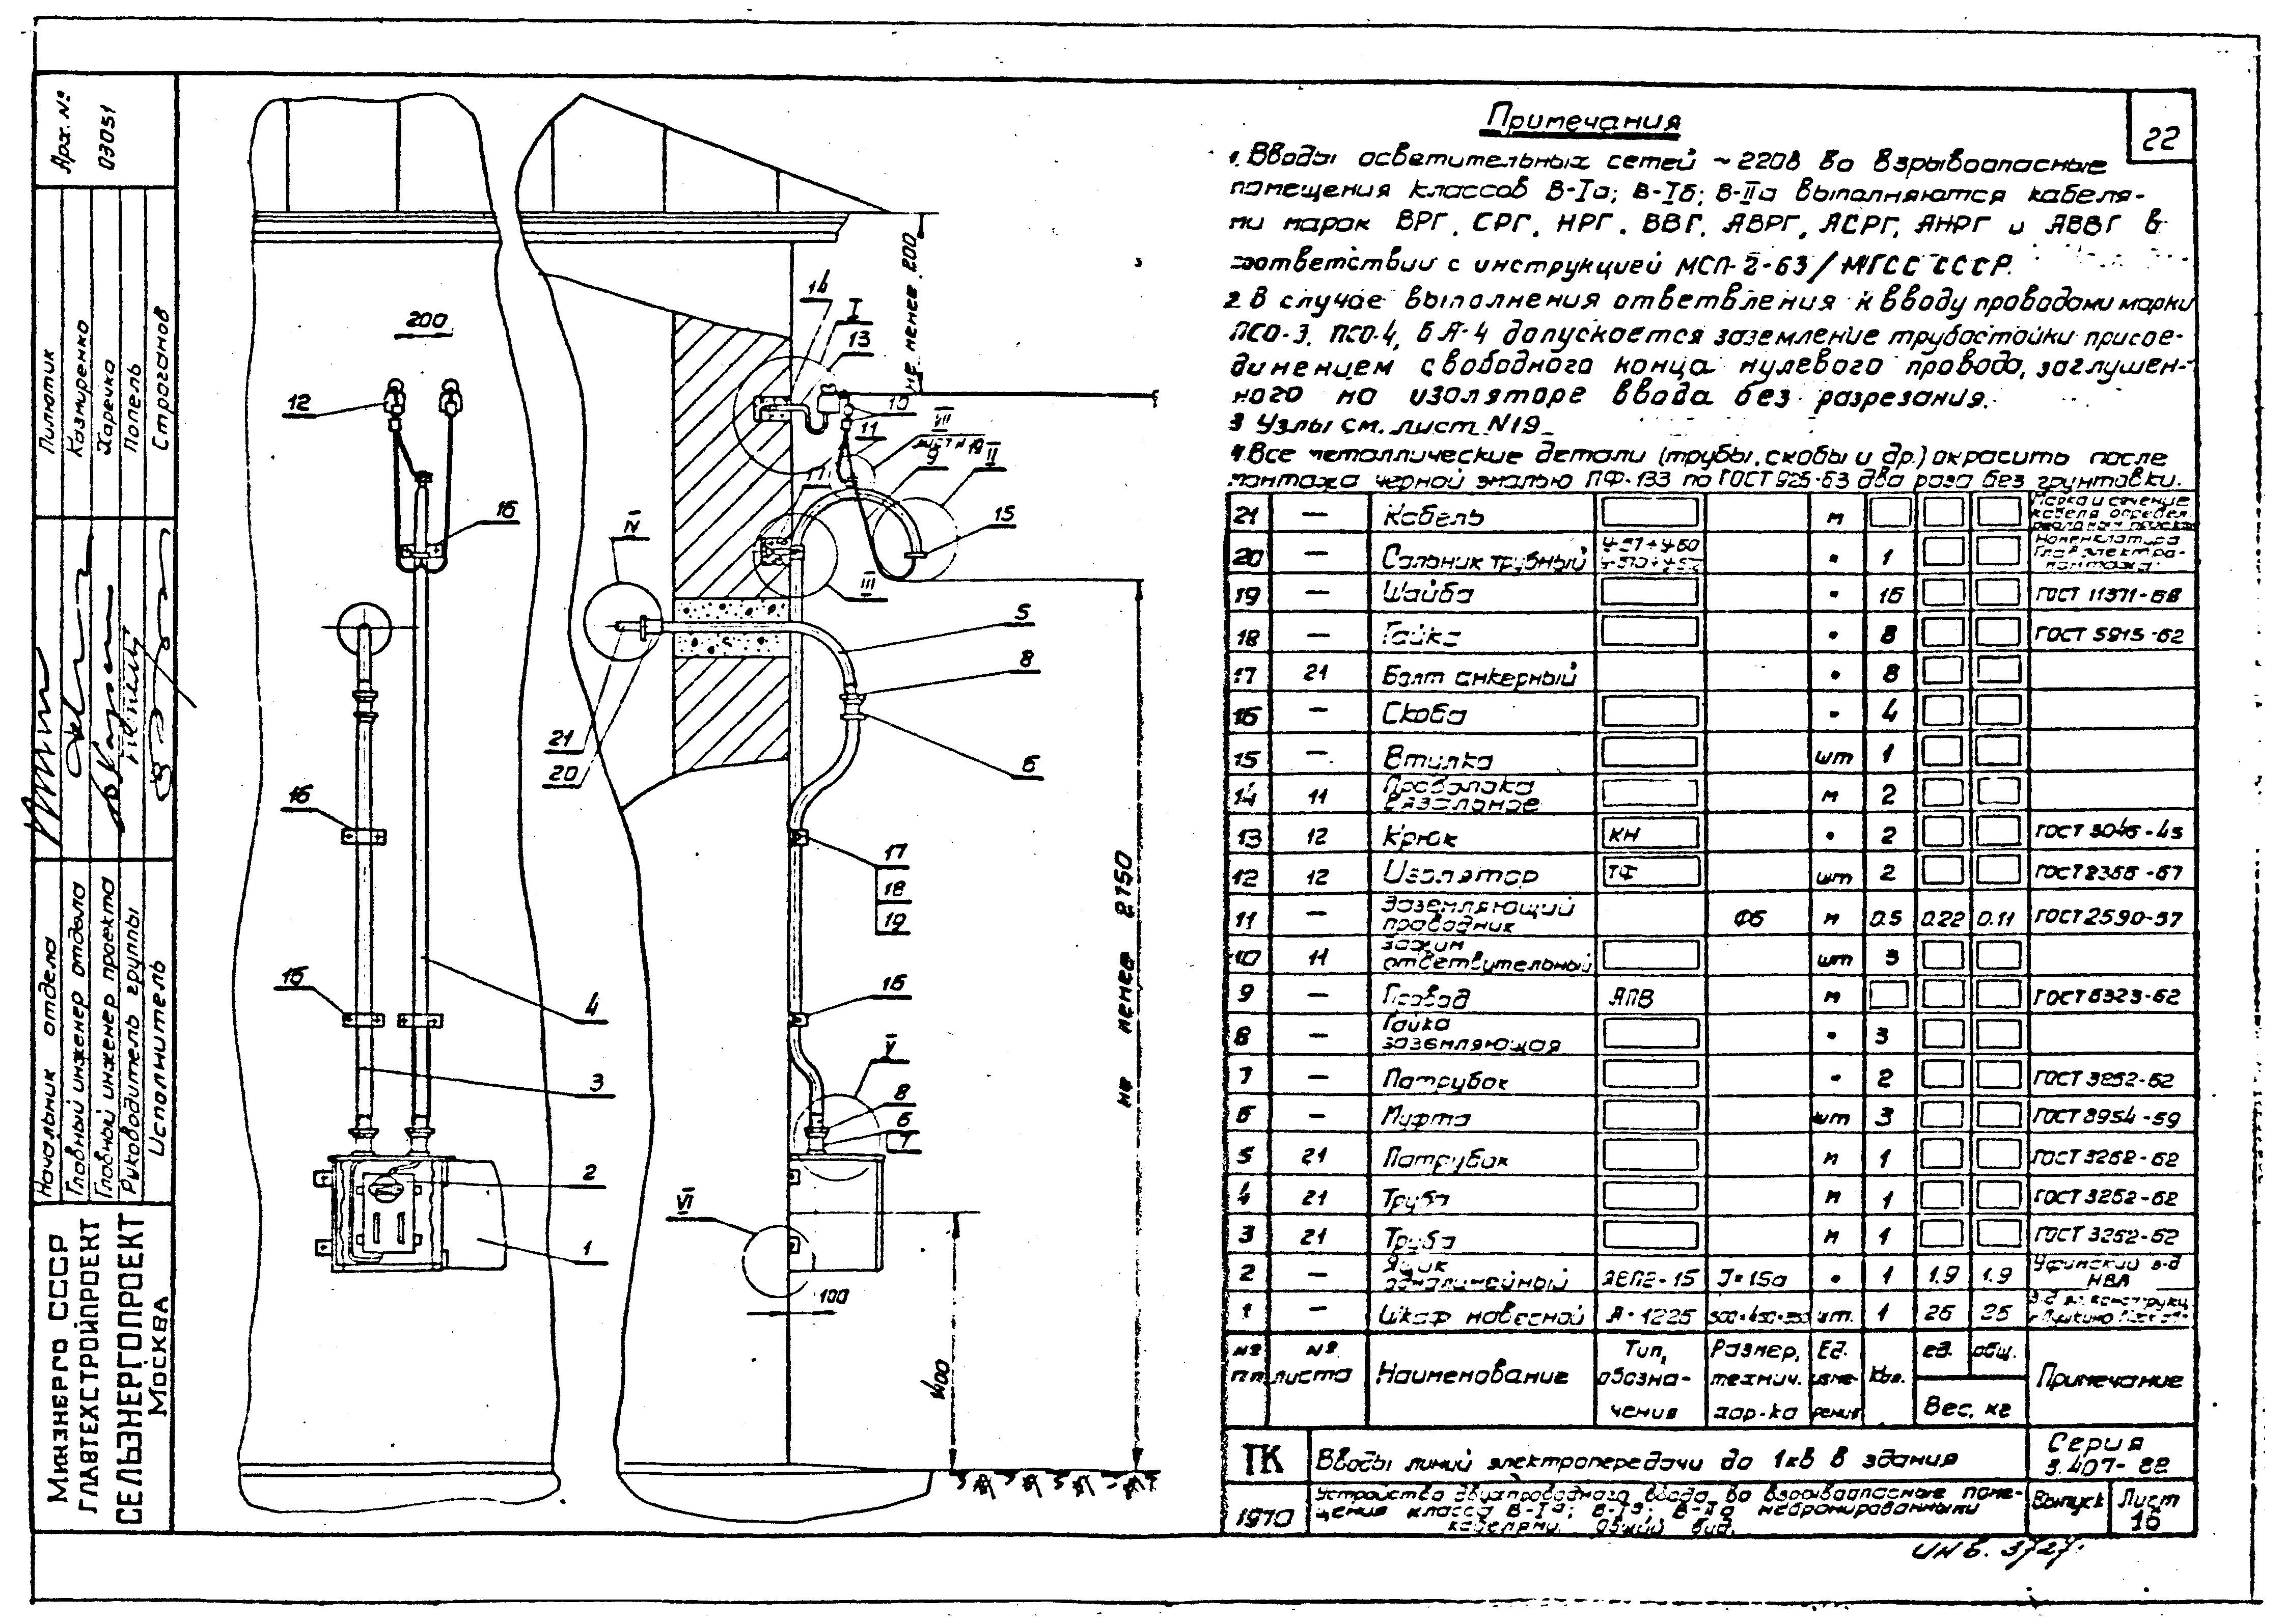 Примечания
22
1. Вводы осветительных сетей ~220в во взрывоопасные
помещения классов В-Iа; В-Iб; В-IIа выполняются кабеля-
ми марок ВРГ, СРГ, НРГ, ВВГ, АВРГ, АСРГ, АНРГ и АВВГ в
соответствии с инструкцией МСП-2-63/МГСС СССР.
2 В случае выполнения ответвления к вводу проводами марки
ПСО-3, ПСО-4, БА-4 допускается заземление трубостойки присое-
динением свободного конца нулевого провода, заглушен-
ного на изоляторе ввода без разрезания.
3 Узлы см. лист N19
4. Все металлические детали (трубы, скобы и др.) окрасить после
монтажа черной эмалью ПФ-133 по ГОСТ 925-63 два раза без грунтовки.
21 — Кабель м Марка и сечение кабеля определ.
20 — Сальник трубный " 1 Номенклатура Главэлектро-монтажа
19 — Шайба " 16 ГОСТ 11371-68
18 — Гайка " 8 ГОСТ 5915-62
17 21 Болт анкерный " 8
16 — Скоба " 4
15 — Втулка шт 1
14 11 Проволока вязальная м 2
13 12 Крюк КН " 2 ГОСТ 3046-45
12 12 Изолятор ТФ шт 2 ГОСТ 2366-67
11 — Заземляющий проводник Ф6 м 0.5 0.22 0.11 ГОСТ 2590-57
10 11 Зажим ответвительный шт 3
9 — Провод АПВ м ГОСТ 6323-62
8 — Гайка заземляющая " 3
7 — Патрубок " 2 ГОСТ 3262-62
6 — Муфта шт 3 ГОСТ 8954-59
5 21 Патрубок м 1 ГОСТ 3262-62
4 21 Труба м 1 ГОСТ 3262-62
3 21 Труба м 1 ГОСТ 3262-62
2 — Ящик однолинейный ЯВП2-15 J=15а " 1 1.9 1.9 Уфимский з-д НВА
1 — Шкаф навесной А-1226 шт. 1 26 26
№№ п.п. № листа Наименование Тип, обозна-чения Размер, технич. хар-ка Ед. изме-рения Кол. ед. общ. Вес, кг Примечание
ТК Вводы линий электропередачи до 1кв в здания Серия 3.407-82
1970 Устройство двухпроводного ввода во взрывоопасные поме-
щения класса В-Iа; В-Iб; В-IIа небронированными
кабелями. Общий вид.
Выпуск Лист 16
инв. 3727
Арх. № 03051
Пилютик
Казмиренко
Харечко
Попель
Строганов
Начальник отдела
Главный инженер отдела
Главный инженер проекта
Руководитель группы
Исполнитель
Минэнерго СССР
ГЛАВТЕХСТРОЙПРОЕКТ
СЕЛЬЭНЕРГОПРОЕКТ
Москва
200
12
16
16
16
4
3
2
1
14
I
13
не менее 200
10
VII
11
лист N19
9
II
17
15
IV
III
5
8
21
20
6
17
18
19
16
V
8
6
7
VI
100
1400
не менее 2750